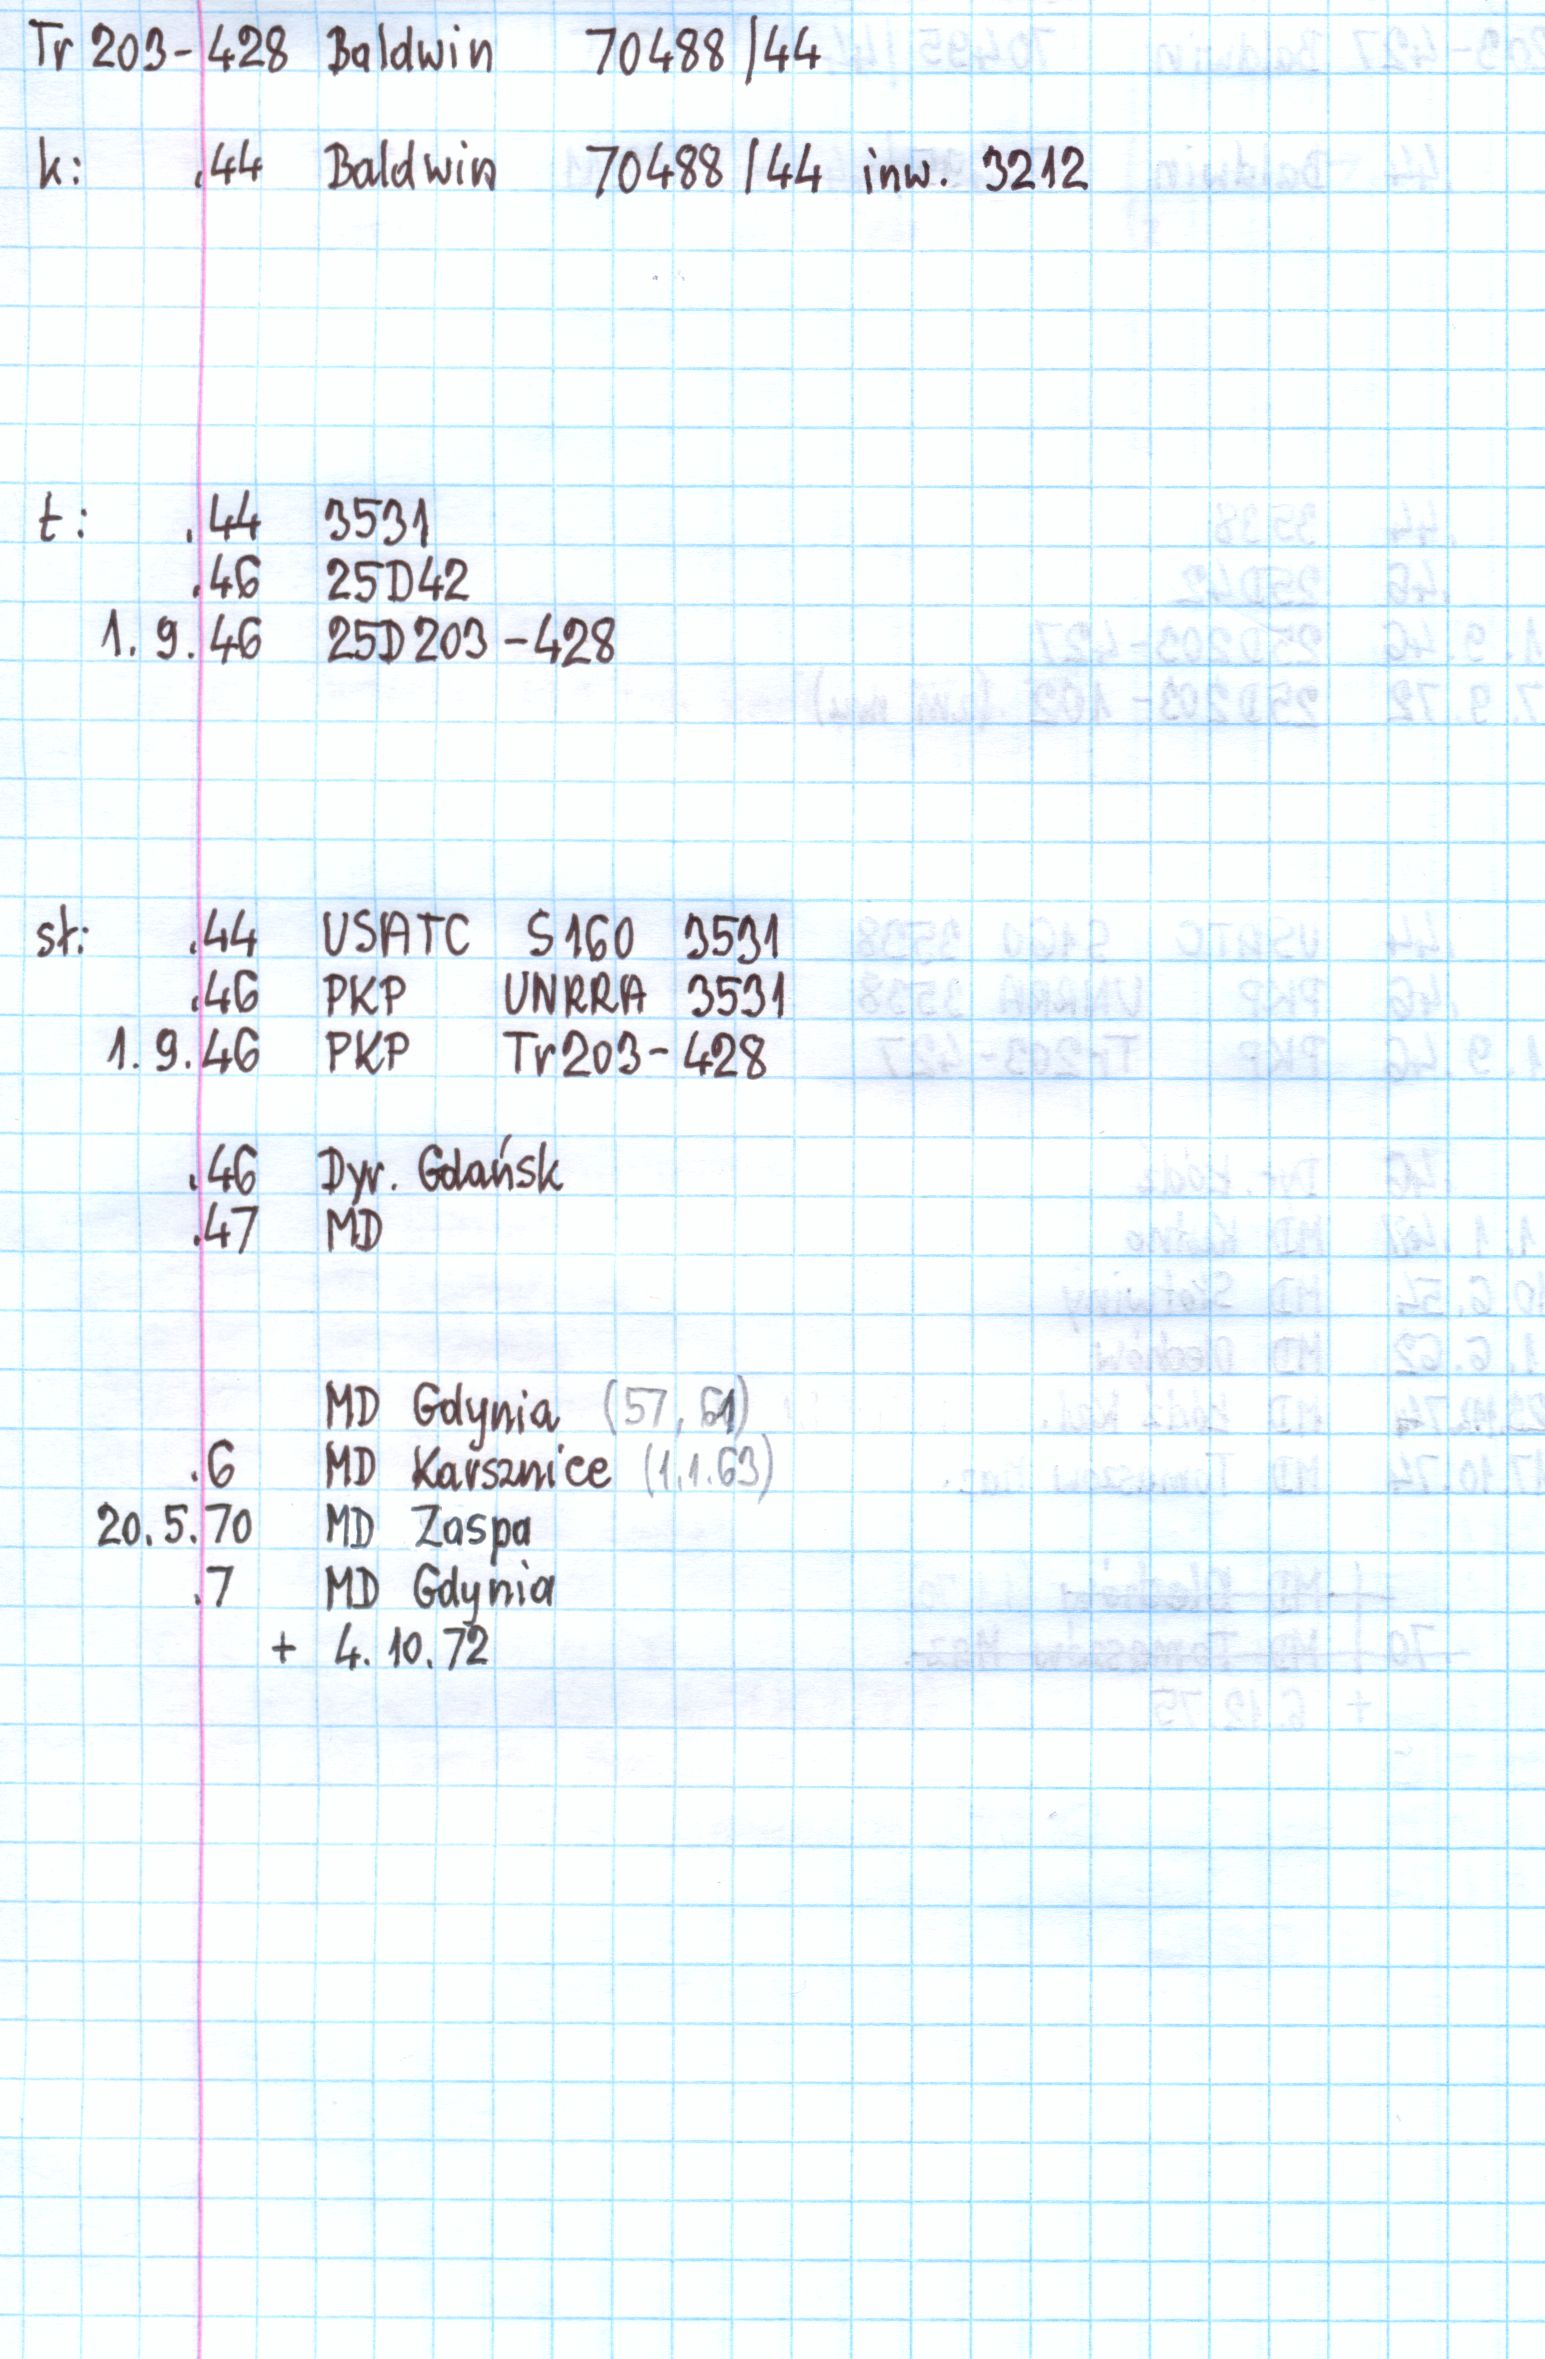 Tr 203-428 Baldwin 70488/44
k: .44 Baldwin 70488/44 inw. 3212
t: .44 3531
.46 25D42
1.9.46 25D203-428
st: .44 USATC S160 3531
.46 PKP UNRRA 3531
1.9.46 PKP Tr203-428
.46 Dyr. Gdańsk
.47 MD
MD Gdynia (57, 61)
.6 MD Karsznice (1.1.63)
20.5.70 MD Zaspa
.7 MD Gdynia
+ 4.10.72